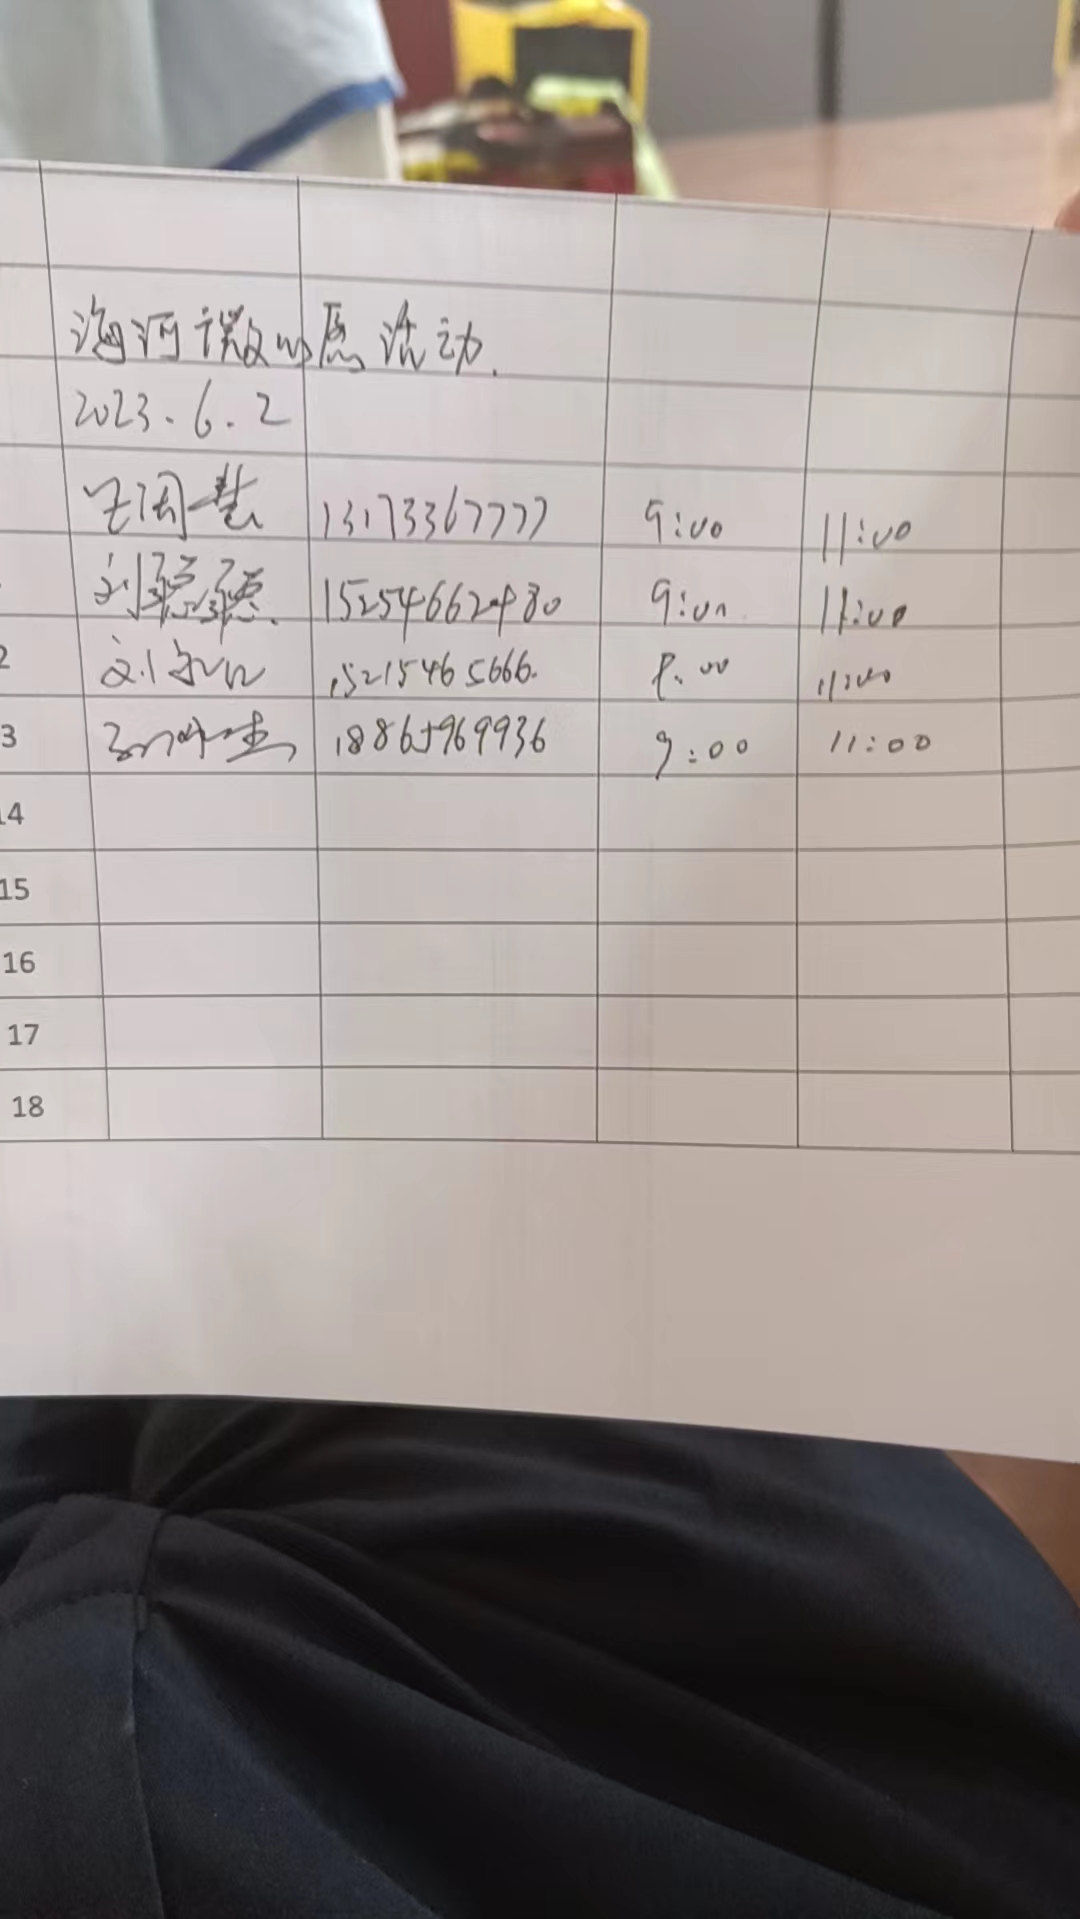 海河微心愿活动.
2023.6.2
13173367777 9:00 11:00
刘 15254662480 9:00 11:00
2 刘 15215465666. 8:00 11:00
3 18865969936 9:00 11:00
14
15
16
17
18